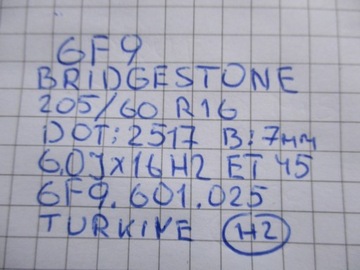 6F9
BRIDGESTONE
205/60 R16
DOT: 2517 B: 7mm
6,0J x 16 H2 ET 45
6F9.601.025
TURKIYE H2